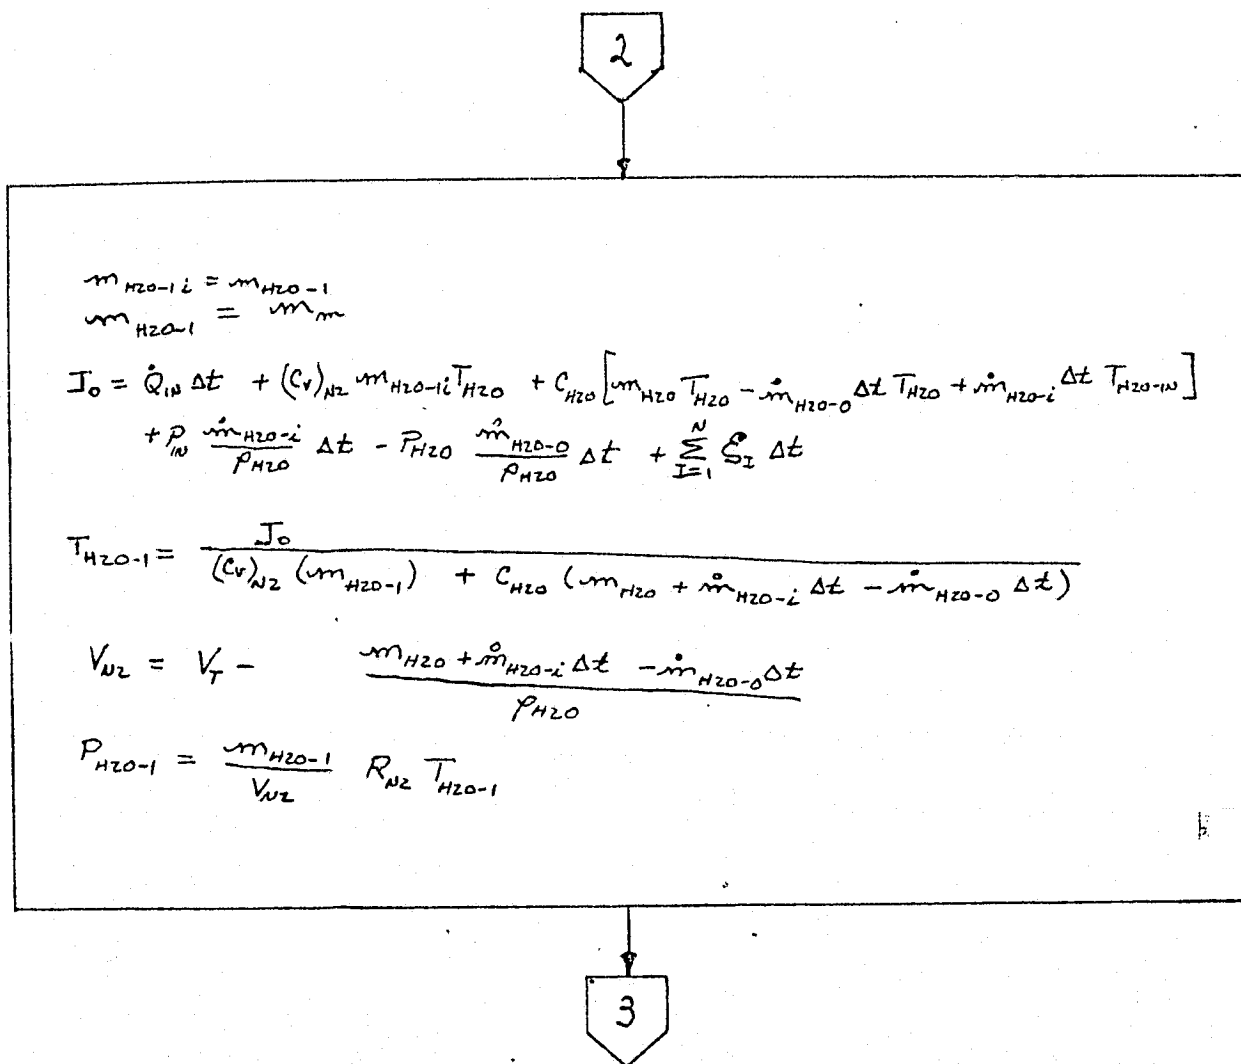 2
m_{H2O-1i} = m_{H2O-1}
m_{H2O-1} = m_m
J_o = Q̇_{IN} Δt + (C_v)_{N2} m_{H2O-1i} T_{H2O} + C_{H2O} [m_{H2O} T_{H2O} - ṁ_{H2O-O} Δt T_{H2O} + ṁ_{H2O-i} Δt T_{H2O-IN}]
+ P_{IN} \frac{ṁ_{H2O-i}}{ρ_{H2O}} Δt - P_{H2O} \frac{ṁ_{H2O-O}}{ρ_{H2O}} Δt + \sum_{I=1}^{N} ξ_I Δt
T_{H2O-1} = \frac{J_o}{(C_v)_{N2} (m_{H2O-1}) + C_{H2O} (m_{H2O} + ṁ_{H2O-i} Δt - ṁ_{H2O-O} Δt)}
V_{N2} = V_T - \frac{m_{H2O} + ṁ_{H2O-i} Δt - ṁ_{H2O-O} Δt}{ρ_{H2O}}
P_{H2O-1} = \frac{m_{H2O-1}}{V_{N2}} R_{N2} T_{H2O-1}
3